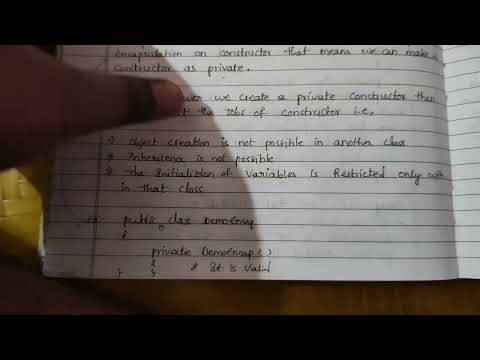 Encapsulation on constructor that means we can make a
Constructor as private.
we create a private constructor then
the Jobs of constructor i.e,
object creation is not possible in another class
is not possible
the Initialization of variables is Restricted only
in that class
public class DemoEncap
{
private DemoEncap()
{ // It is valid
} }